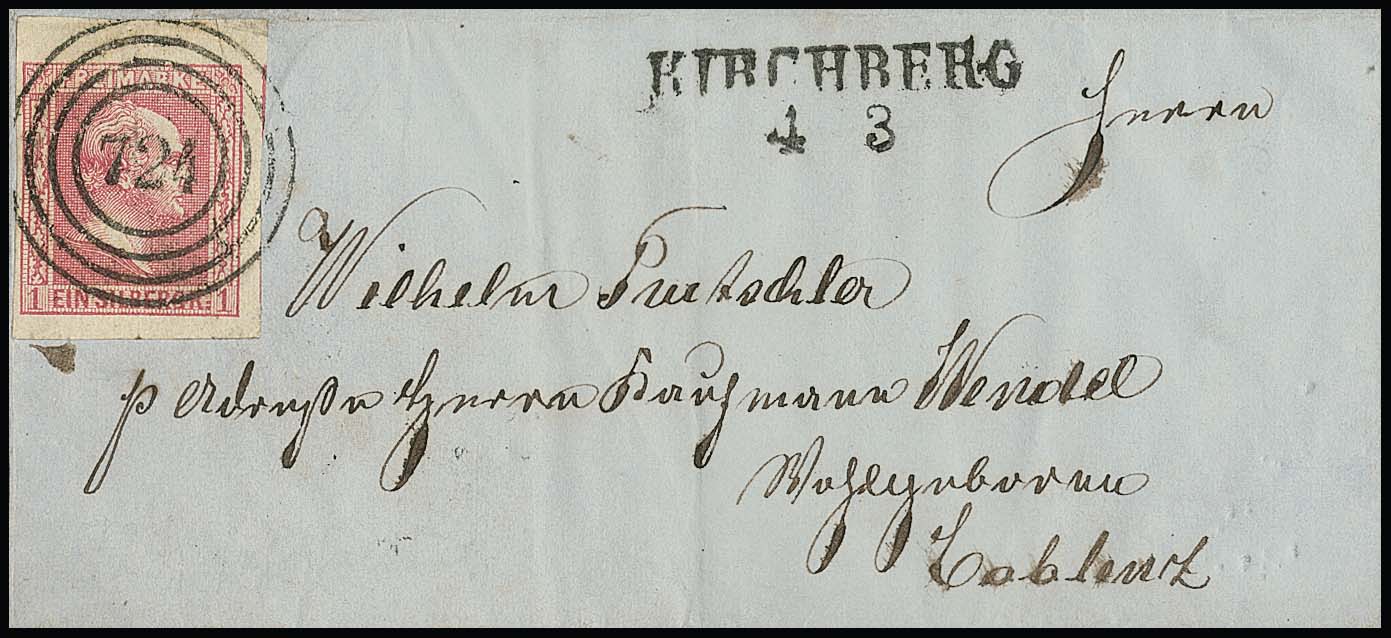 FREIMARKE
724
1 EIN SILBERGR. 1
KIRCHBERG
4 3
Herrn
Wilhelm
p Adresse Herrn Kaufmann Wendel
Wohlgeboren
Coblenz